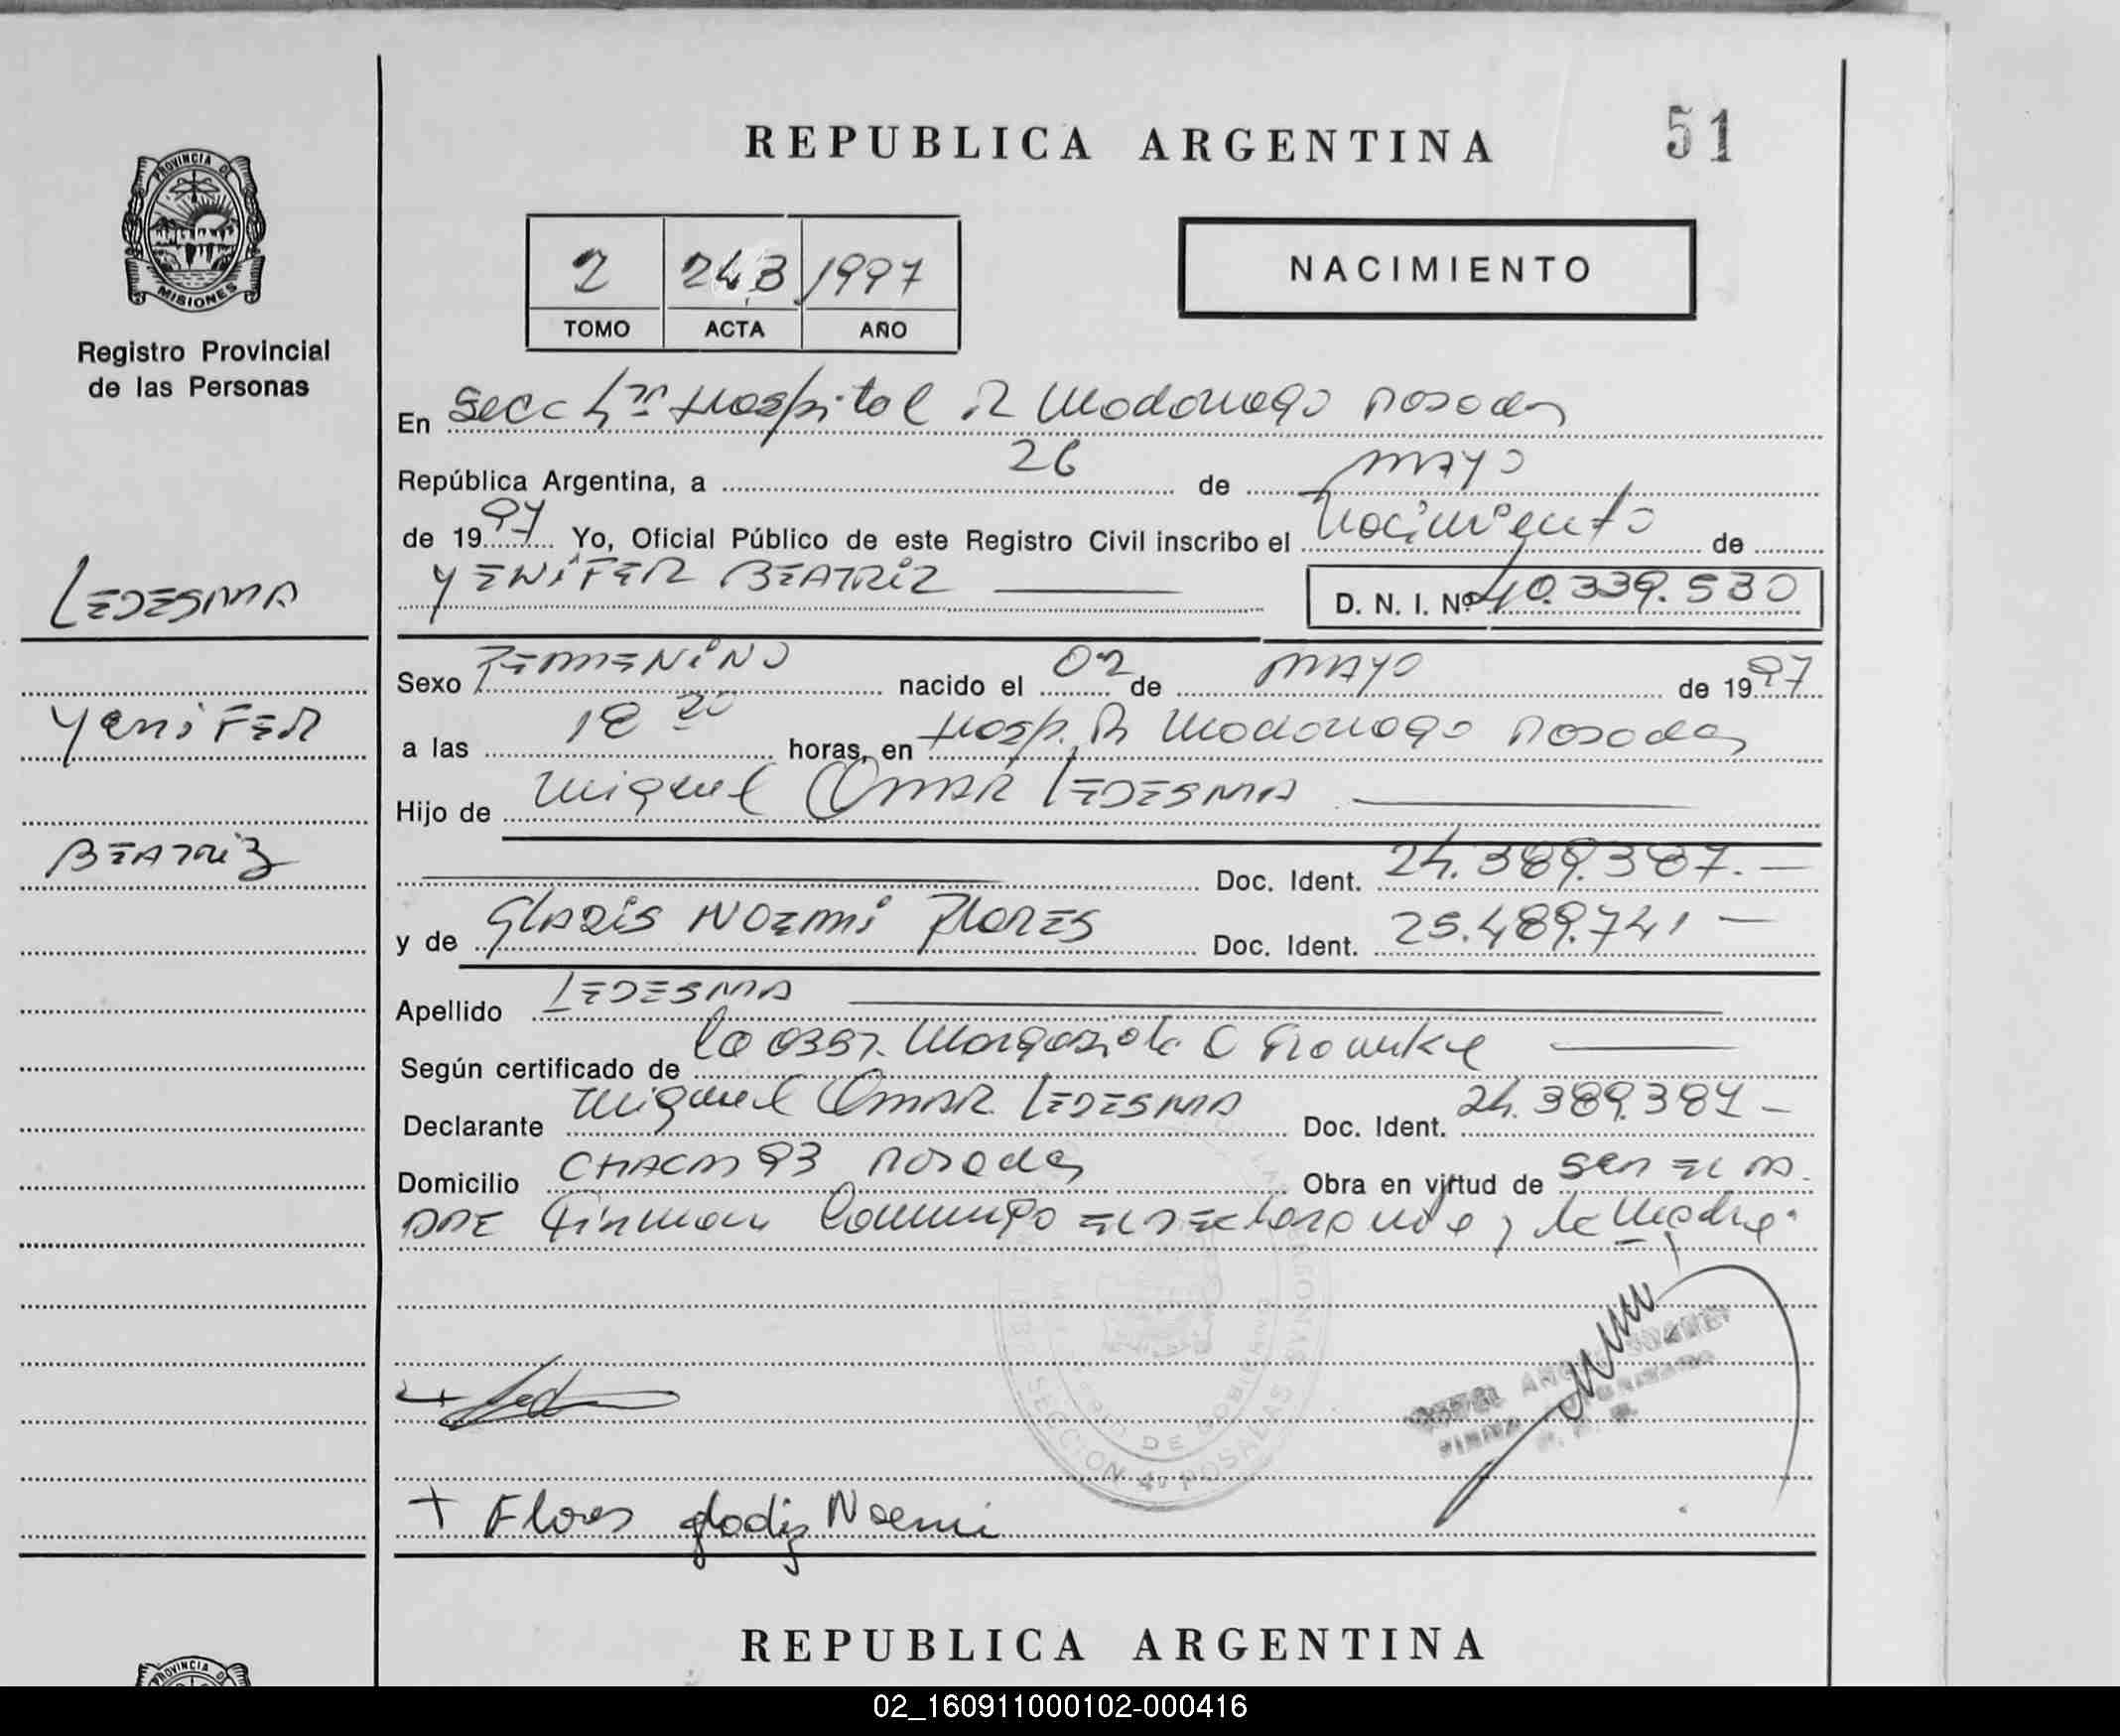 REPUBLICA ARGENTINA
51
PROVINCIA DE MISIONES
Registro Provincial
de las Personas
2 243 1997
TOMO ACTA AÑO
NACIMIENTO
En Secc 4ta Hospital R Madariaga Posadas
República Argentina, a 26 de MAYO
de 1997 Yo, Oficial Público de este Registro Civil inscribo el Nacimiento de
YENIFER BEATRIZ
D. N. I. Nº 40.339.530
LEDESMA
YENIFER
BEATRIZ
Sexo FEMENINO nacido el 02 de MAYO de 1997
a las 18 20 horas, en Hosp. R Madariaga Posadas
Hijo de Miguel OMAR LEDESMA
Doc. Ident. 24.389.387.-
y de GLADIS NOEMI FLORES Doc. Ident. 25.489.741 -
Apellido LEDESMA
Según certificado de la Obst.
Declarante Miguel OMAR LEDESMA Doc. Ident. 24.389.387 -
Domicilio CHACAS 93 Posadas Obra en virtud de SER EL PA
DRE Firman Conmigo EL DEClarante y la Madre.
SECCION 4a POSADAS
+ Flores gladis Noemi
REPUBLICA ARGENTINA
PROVINCIA D
02_160911000102-000416